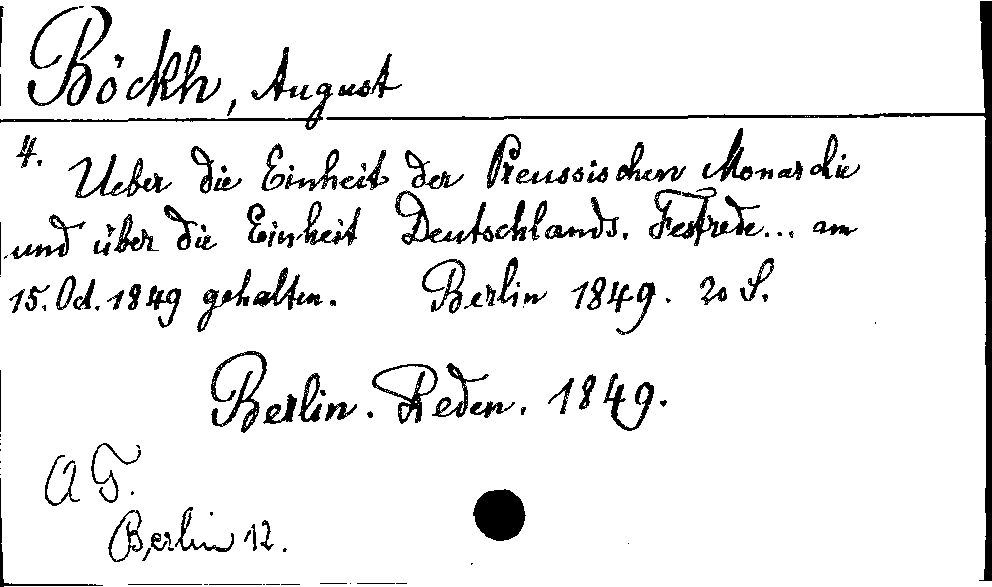 Böckh, August
4. Ueber die Einheit der Preussischen Monarchie
und über die Einheit Deutschlands. Festrede... am
15. Oct. 1849 gehalten. Berlin 1849. 20 S.
Berlin. Reden. 1849.
A T.
Berlin 12.